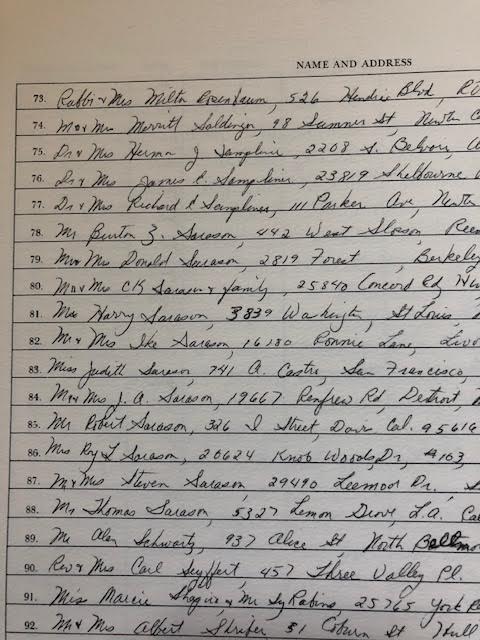 NAME AND ADDRESS
73. Rabbi & Mrs Milton Rosenbaum, 526 Hendrie Blvd,
74. Mr & Mrs Merritt 98 Sumner St Newton
75. Dr & Mrs Herman J Sampliner, 2208 S. Belvoir,
76. Dr & Mrs James E. Sampliner, 23819 Shelburne
77. Dr & Mrs Richard E Sampliner, 111 Parker Av, Newton
78. Mr Burton Z. Sarason, 442 West
79. Mr & Mrs Donald Sarason, 2819 Forest Berkeley
80. Mr & Mrs CK Sarason & family, 25840 Concord Rd,
81. Harry Sarason 3839 Washington, St Louis,
82. Mr & Mrs Ike Sarason, 16180 Ronnie Lane, Livo
83. Miss Judith Sarason, 741 A. Castro, San Francisco,
84. Mr & Mrs J. A. Sarason, 19667 Renfrew Rd, Detroit,
85. Mr Robert Sarason, 326 I Street, Davis Cal. 95616
86. Mrs Roy L Sarason, 20624 Knob Woods Dr, #103,
87. Mr & Mrs Steven Sarason 29490 Leemoor Dr.
88. Mr Thomas Sarason, 5327 Lemon Grove, L.A. Ca
89. Mr Alan Schwartz, 937 Alice St North
90. Rev & Mrs Carl Seyffert, 457 Three Valley Pl.
91. Miss Marcie Shapiro & Mr Sy Rabins, 25765 York R
92. Mr & Mrs Albert Shrifer 31 Coburn St Hull